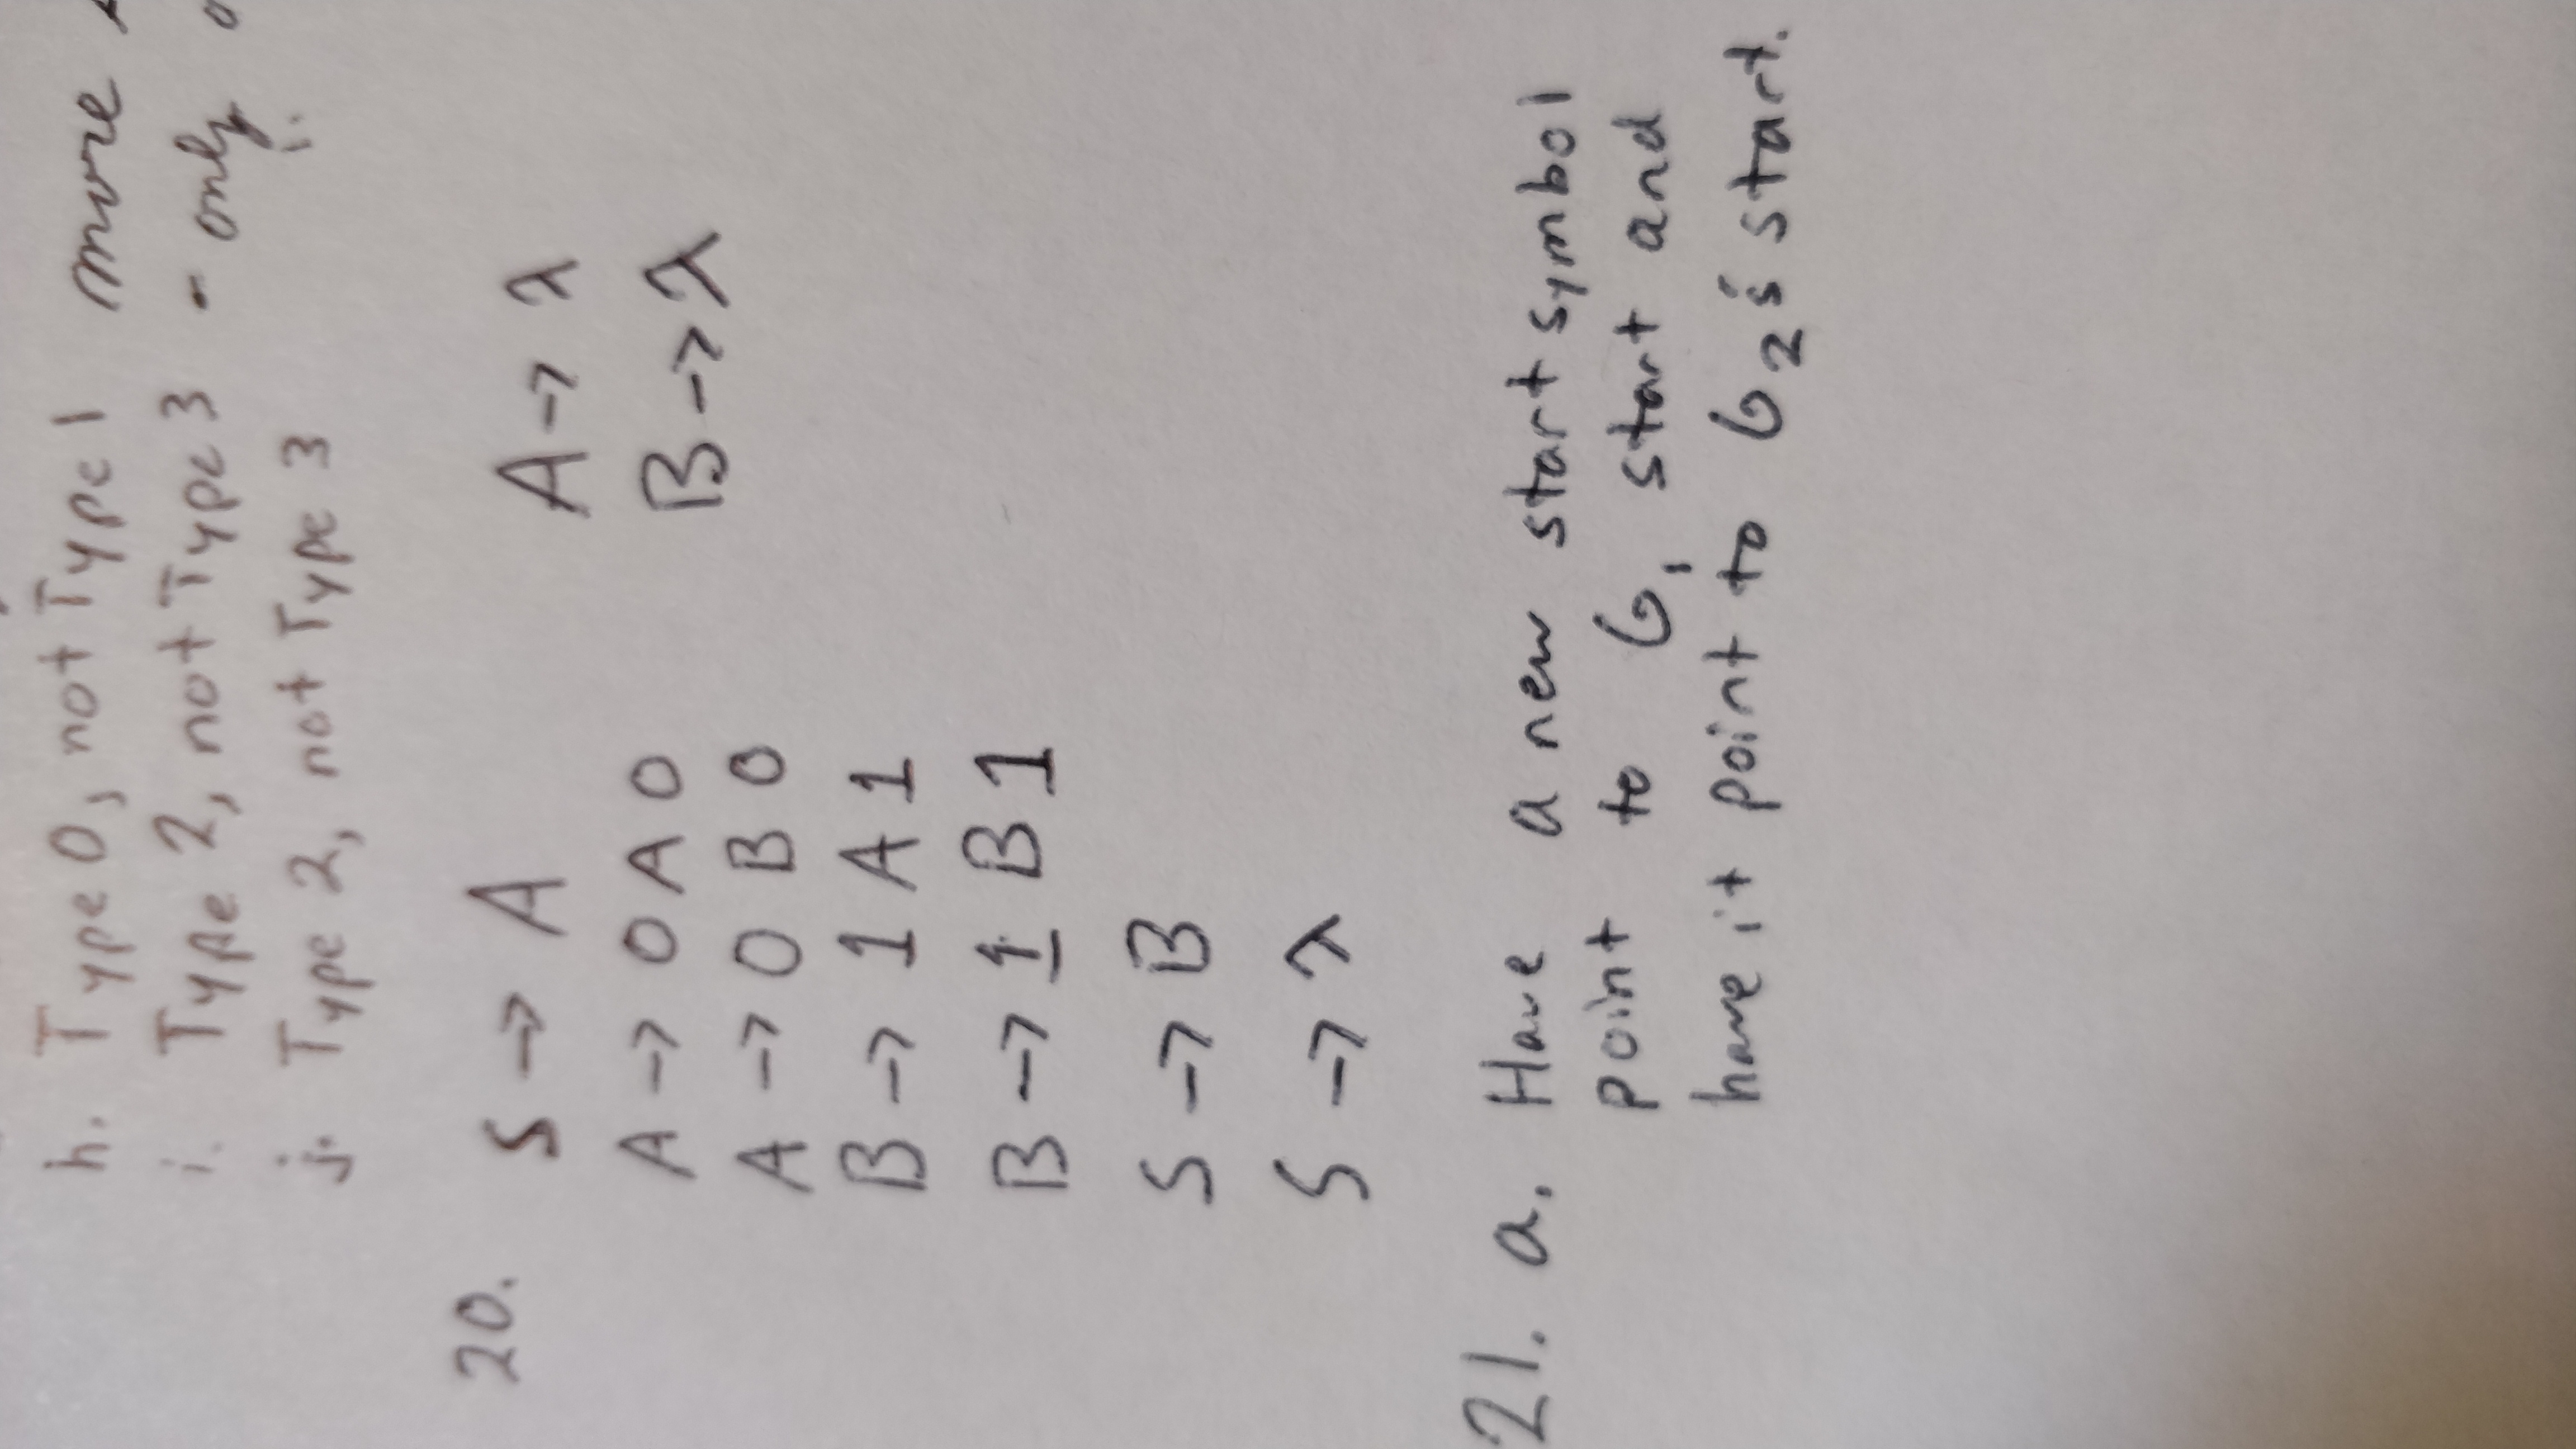 h. Type 0, not Type 1 more
i. Type 2, not Type 3 - only
j. Type 2, not Type 3
20. S → A A → λ
A → 0 A 0 B → λ
A → 0 B 0
B → 1 A 1
B → 1 B 1
S → B
S → λ
21. a. Have a new start symbol
point to G₁ start and
have it point to G₂'s start.